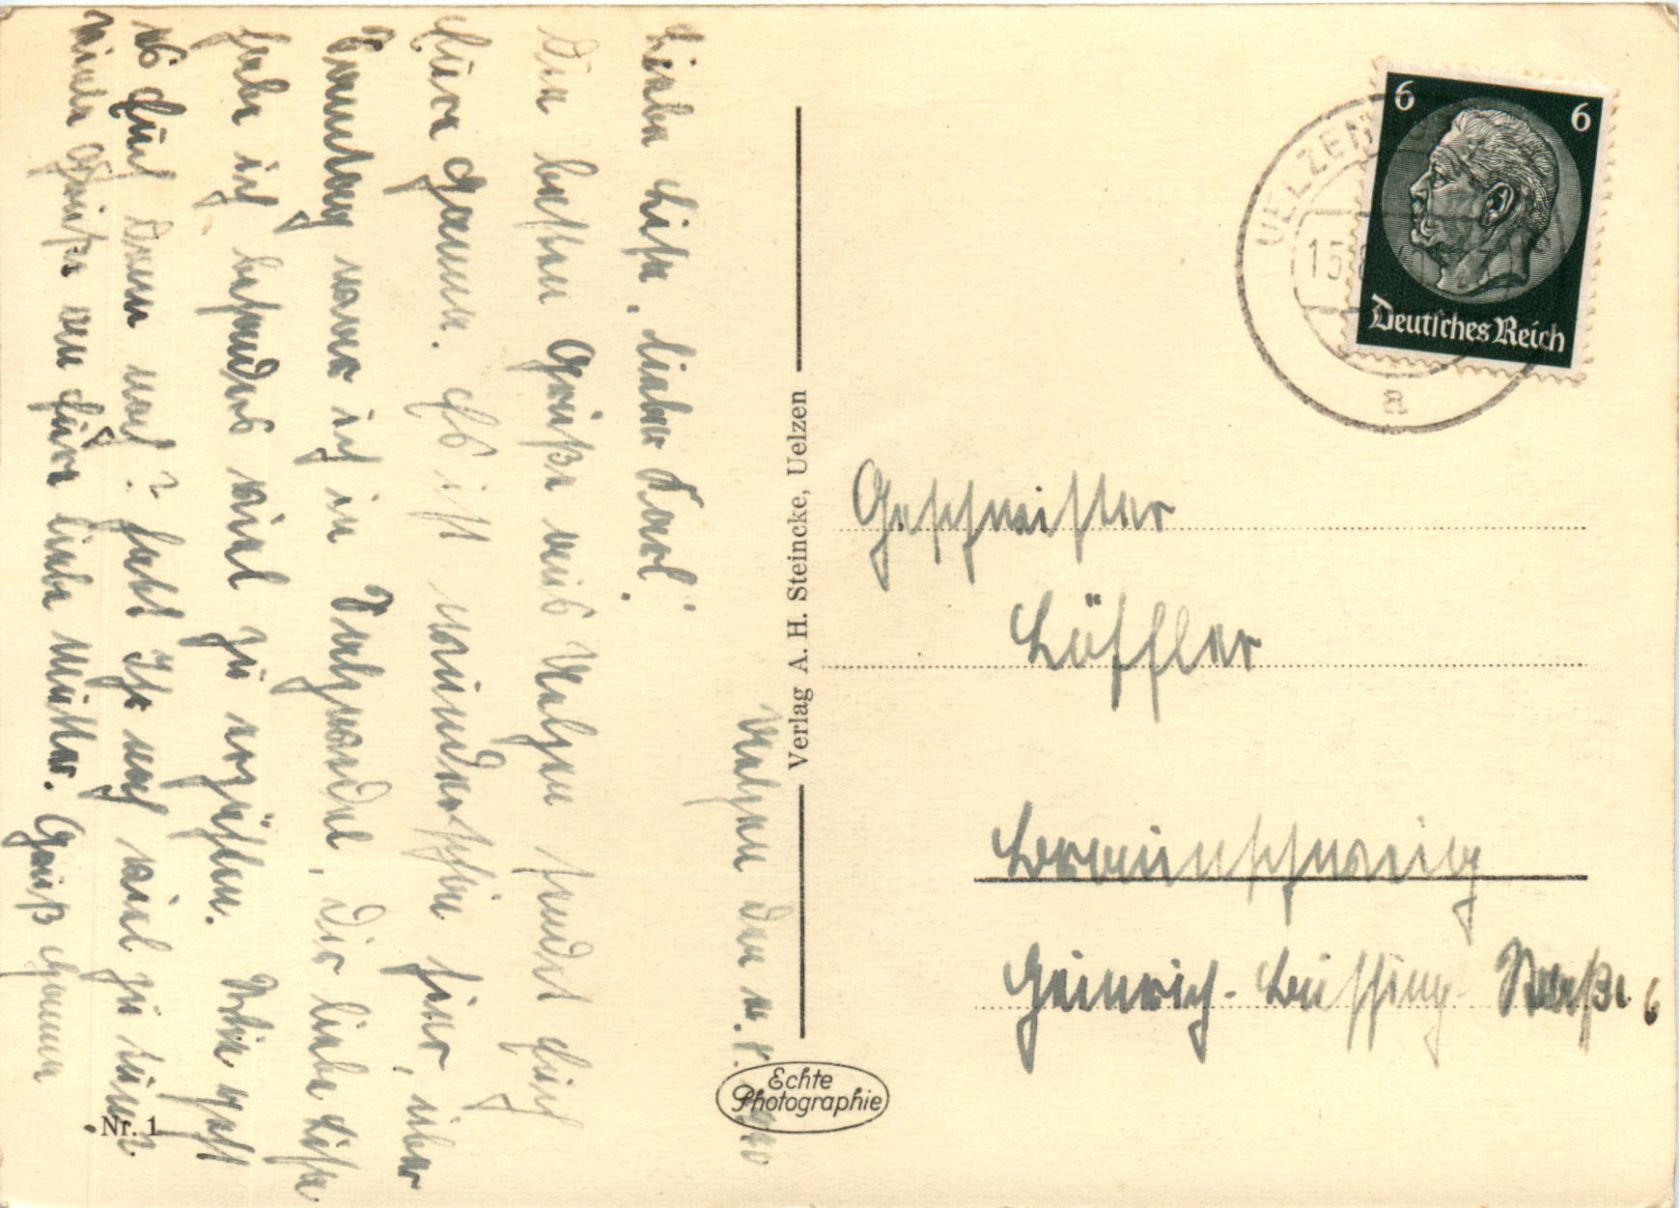 Uelzen den
Liebe Lisa, lieber Karl!
Die besten Grüße aus Uelzen sendet Euch
Eure Hanna. Es ist wunderschön hier, über
Sonntag war ich in Salzwedel, Dir liebe Lisa
habe ich besonders viel zu erzählen. Wie geht
es Euch denn noch? habt Ihr noch viel zu tun?
viele Grüße an Eure liebe Mutter. Gruß Hanna
Nr. 1
Verlag A. H. Steincke, Uelzen
Echte
Photographie
6 6
Deutsches Reich
UELZEN
a
Geschwister
Löffler
Braunschweig
Heinrich-Büssing-Straße 6